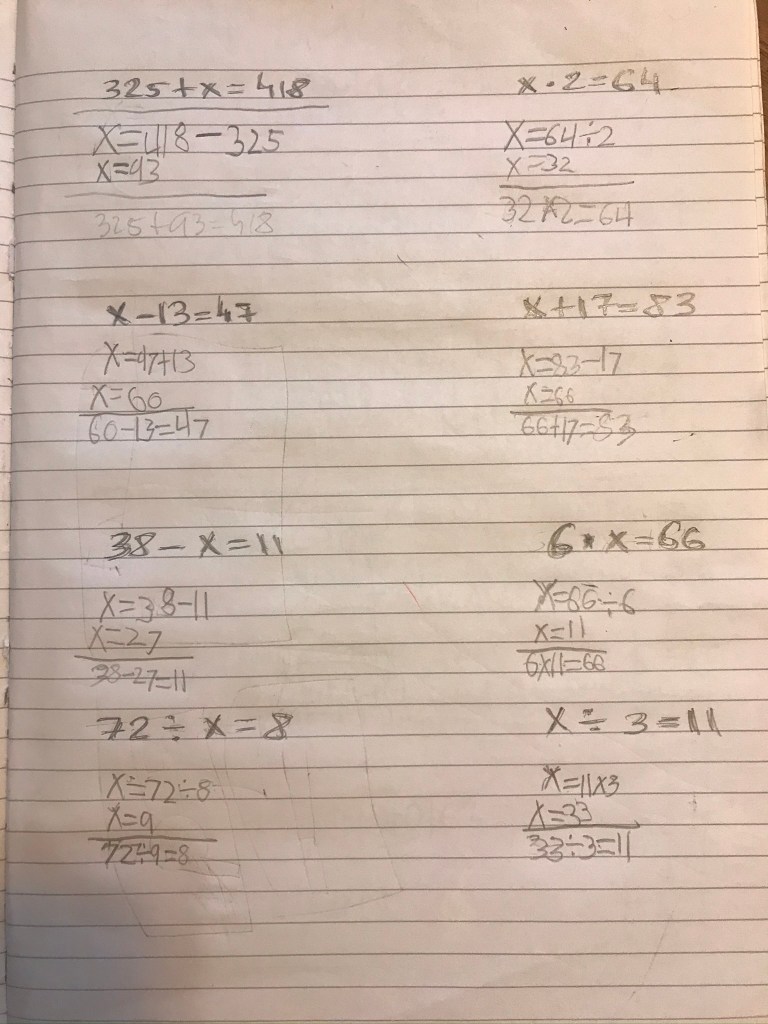 325+x=418
X=418-325
x=93
325+93=418
x·2=64
X=64÷2
x=32
32×2=64
x-13=47
X=47+13
X=60
60-13=47
x+17=83
X=83-17
X=66
66+17=83
38-x=11
X=38-11
X=27
38-27=11
6·x=66
X=66÷6
x=11
6x11=66
72÷x=8
X=72÷8
X=9
72÷9=8
X÷3=11
X=11x3
X=33
33÷3=11